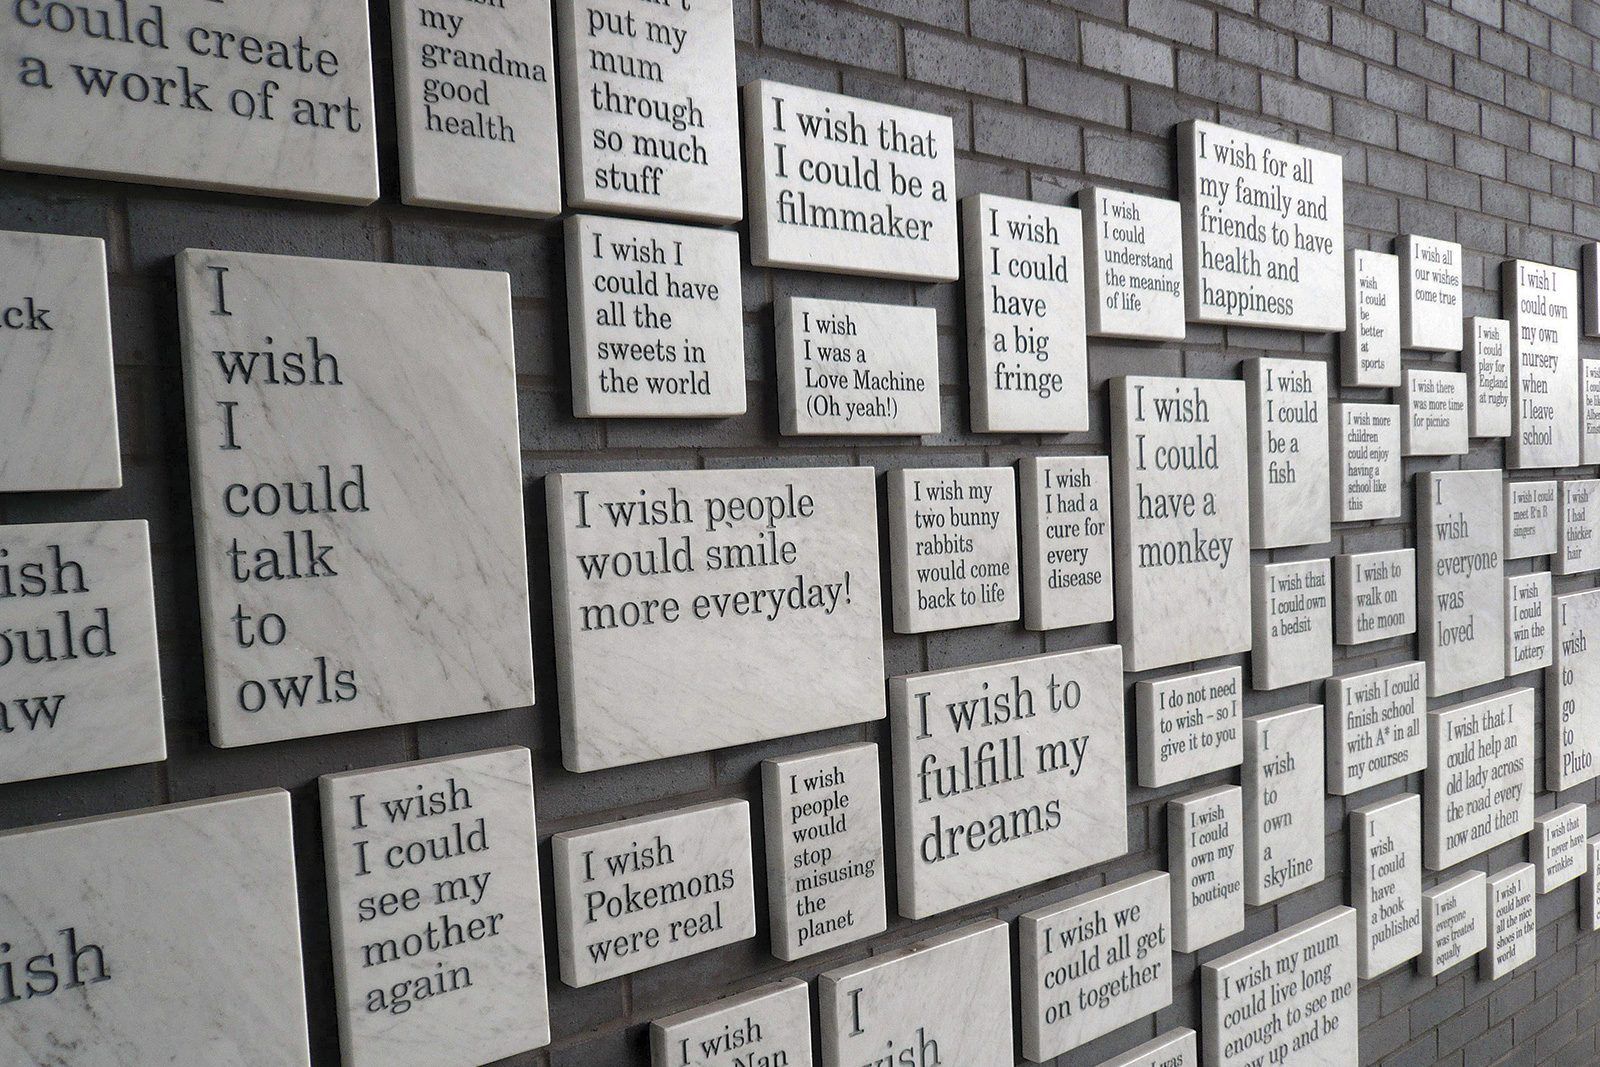 could create
a work of art
my
grandma
good
health
put my
mum
through
so much
stuff
I wish that
I could be a
filmmaker
I wish for all
my family and
friends to have
health and
happiness
I wish
I could
have
a big
fringe
I wish
I could
understand
the meaning
of life
I
wish
I could
be
better
at
sports
I wish all
our wishes
come true
I wish
I could
play for
England
at rugby
I wish I
could own
my own
nursery
when
I leave
school
ck
I
wish
I
could
talk
to
owls
I wish I
could have
all the
sweets in
the world
I wish
I was a
Love Machine
(Oh yeah!)
I wish
I could
have a
monkey
I wish
I could
be a
fish
I wish more
children
could enjoy
having a
school like
this
I wish there
was more time
for picnics
ish
ould
aw
I wish people
would smile
more everyday!
I wish my
two bunny
rabbits
would come
back to life
I wish
I had a
cure for
every
disease
I wish that
I could own
a bedsit
I wish to
walk on
the moon
I
wish
everyone
was
loved
I wish I could
meet R'n B
singers
I wish
I had
thicker
hair
I wish
I could
win the
Lottery
I
wish
to
go
to
Pluto
I wish to
fulfill my
dreams
I do not need
to wish – so I
give it to you
I
wish
to
own
a
skyline
I wish I could
finish school
with A* in all
my courses
I wish that I
could help an
old lady across
the road every
now and then
I wish that
I never have
wrinkles
ish
I wish
I could
see my
mother
again
I wish
Pokemons
were real
I wish
people
would
stop
misusing
the
planet
I wish we
could all get
on together
I wish
I could
own my
own
boutique
I
wish
I could
have
a book
published
I wish
everyone
was treated
equally
I wish I
could have
all the nice
shoes in the
world
I wish
Nan
I
wish
I wish my mum
could live long
enough to see me
up and be
was